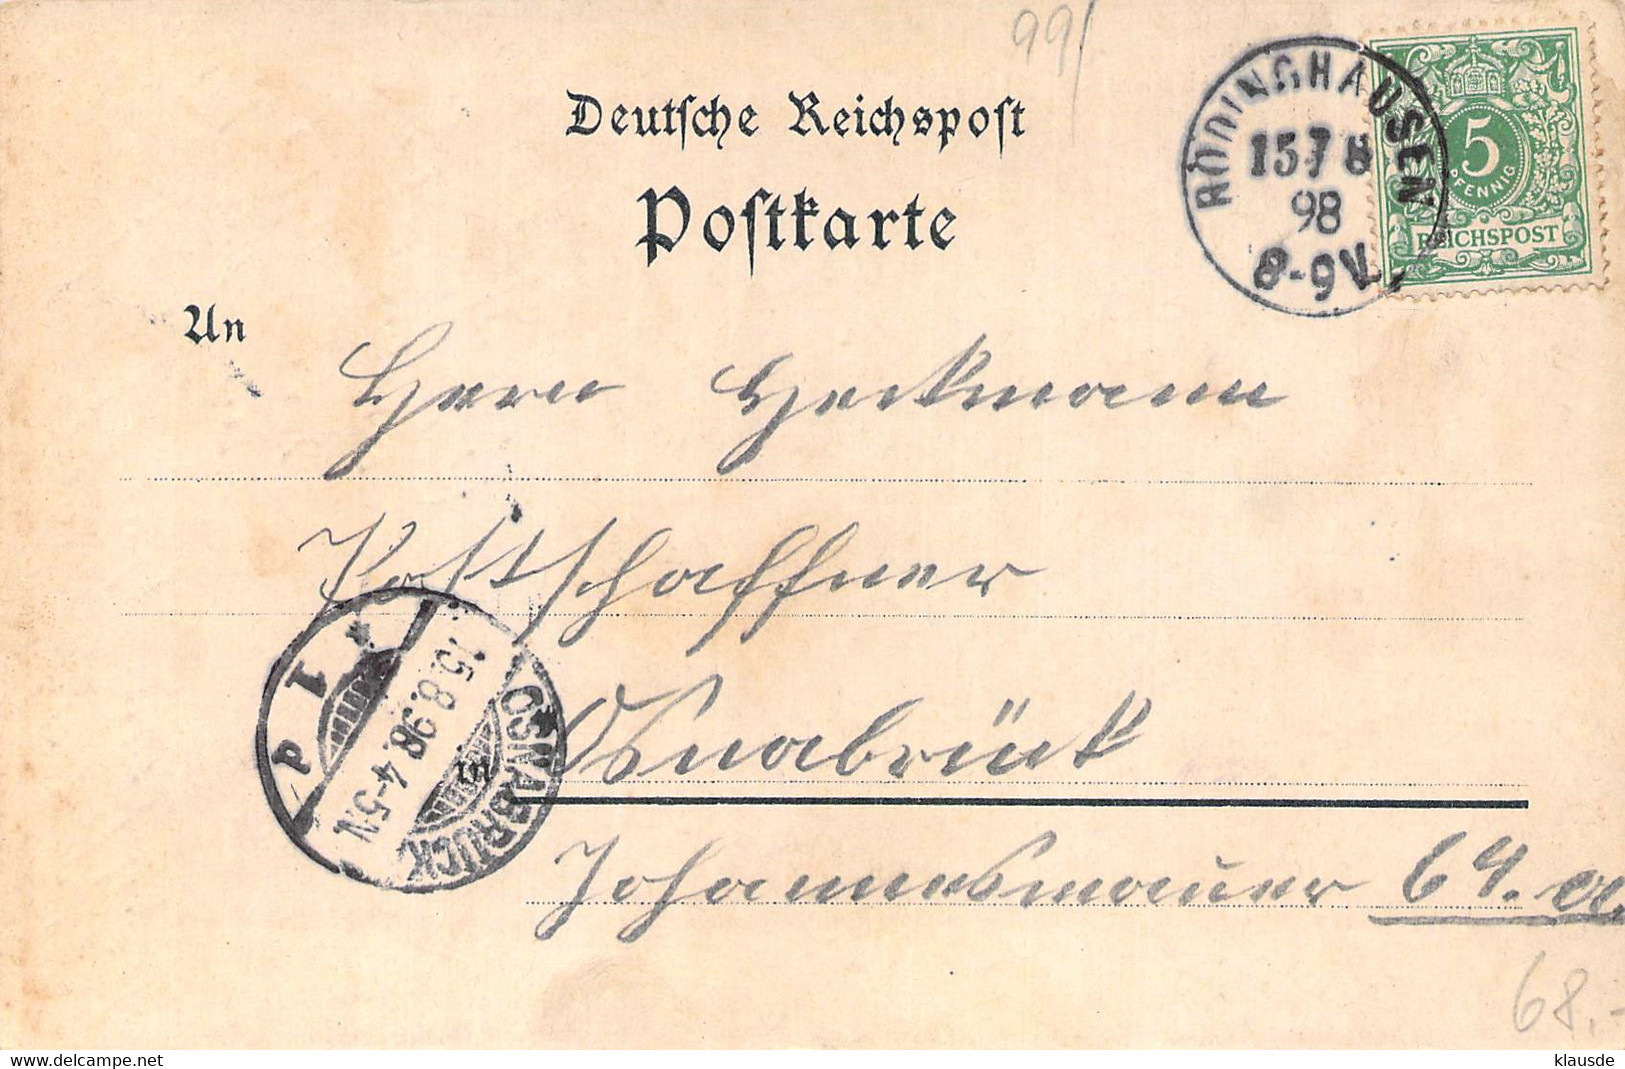 99/
Deutsche Reichspost
Postkarte
RÖDINGHAUSEN
15 8
98
8-9V.
5
PFENNIG
REICHSPOST
An
Herrn Heckmann
Postschaffner
in Osnabrück
Johannesmauer 64.a.
OSNABRÜCK
15.8.98.4-5N.
* 1 P
68.-
klausde